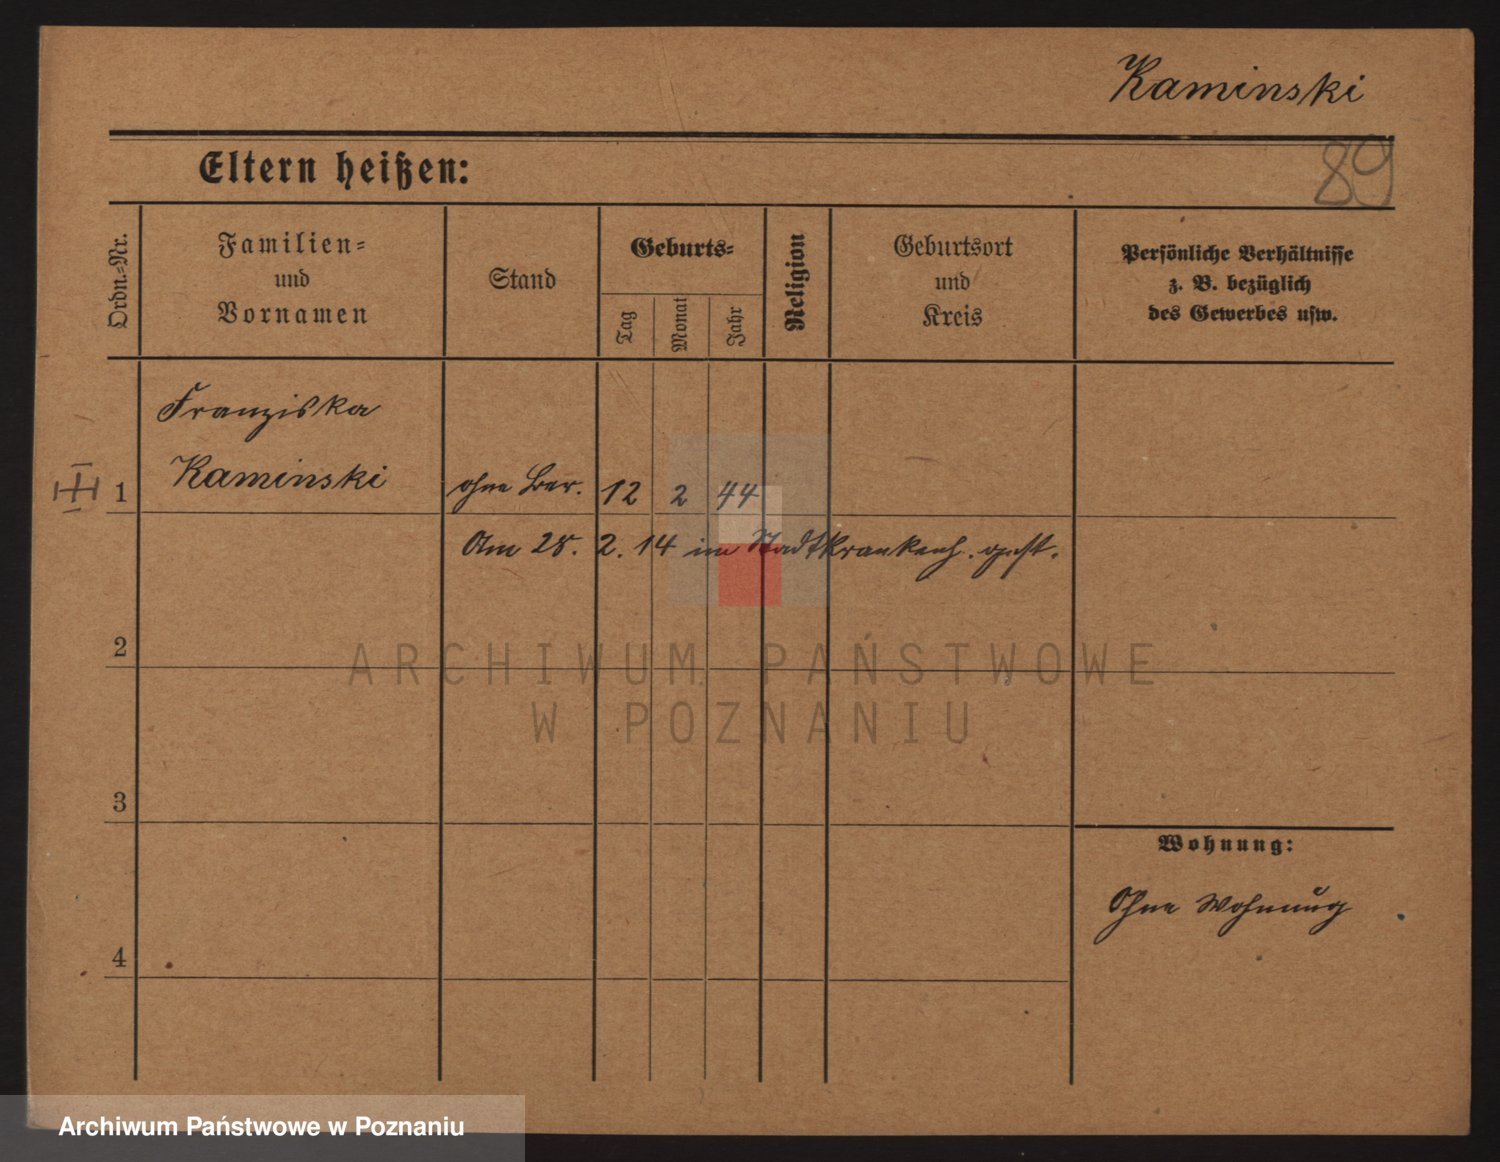 Kaminski
89
Eltern heißen:
Ordn.=Nr.
Familien=
und
Vornamen
Stand
Geburts=
Tag
Monat
Jahr
Religion
Geburtsort
und
Kreis
Persönliche Verhältnisse
z. B. bezüglich
des Gewerbes usw.
Franziska
1 Kaminski ohne Ber. 12 2 44
Am 28. 2. 14 im Stadtkrankenh. gest.
2
ARCHIWUM PAŃSTWOWE
W POZNANIU
3
Wohnung:
Ohne Wohnung
4
Archiwum Państwowe w Poznaniu